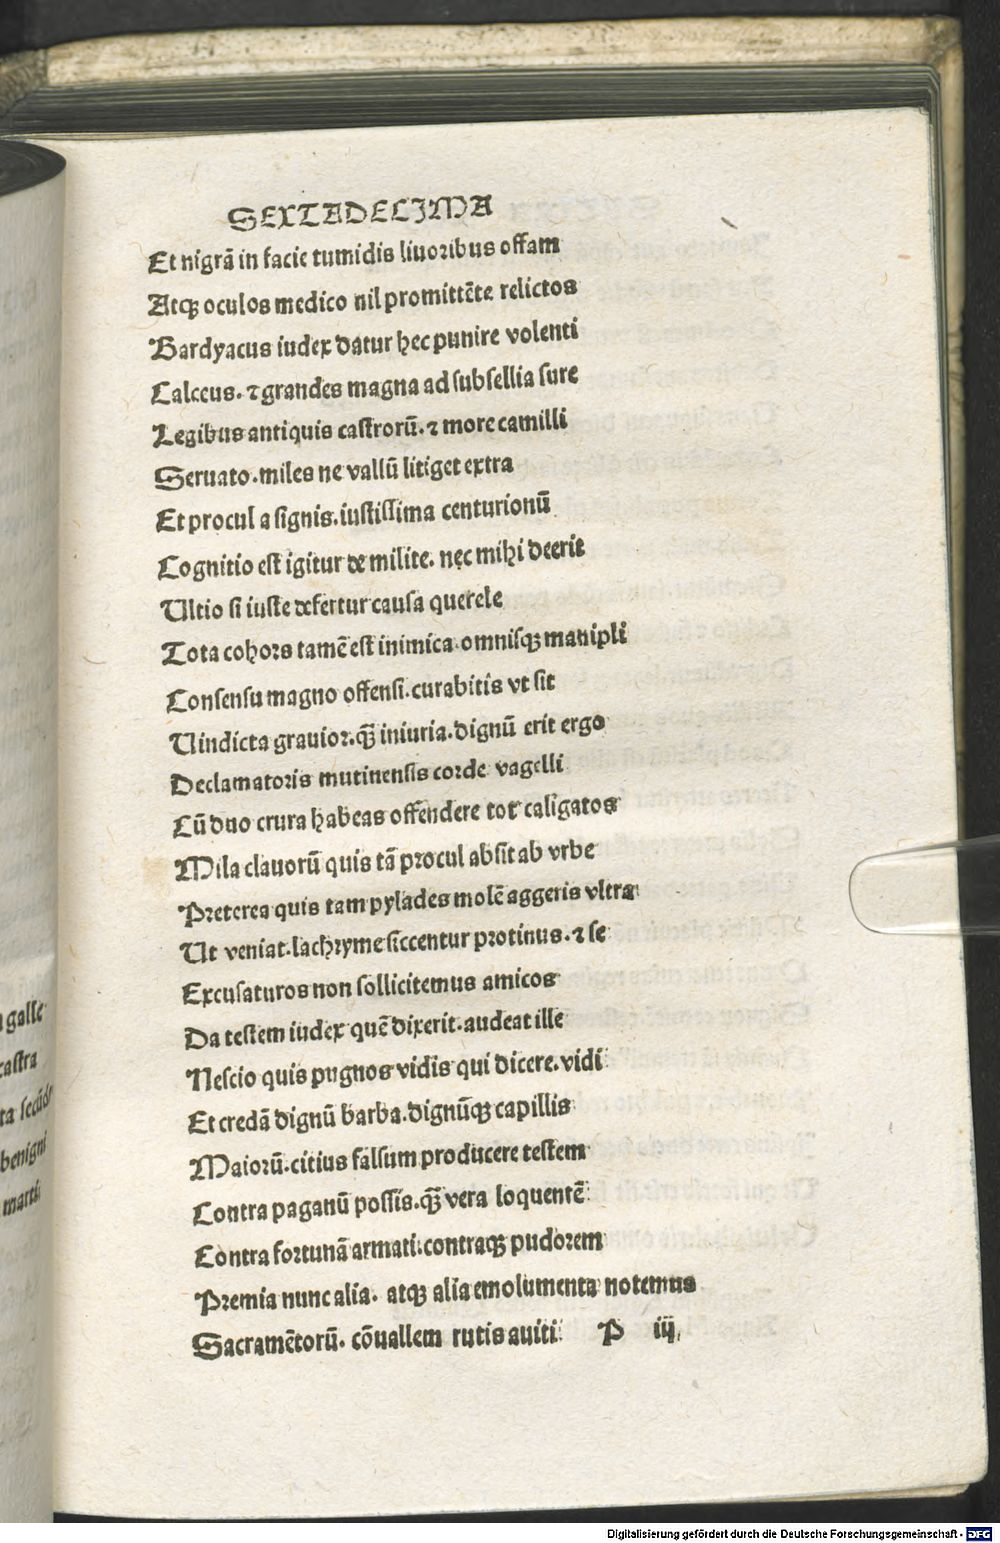 galle
castra
ta secūdo
benigni
marti
SEXTADECIMA
Et nigrā in facie tumidis liuoribus offam
Atqꝫ oculos medico nil promittēte relictos
Bardyacus iudex datur hec punire volenti
Calceus. ⁊ grandes magna ad subsellia sure
Legibus antiquis castrorū. ⁊ more camilli
Seruato. miles ne vallū litiget extra
Et procul a signis. iustissima centurionū
Cognitio est igitur de milite. nec mihi deerit
Ultio si iuste defertur causa querele
Tota cohors tamē est inimica. omnisqꝫ manipli
Consensu magno offensi. curabitis vt sit
Uindicta grauior. qꝫ̄ iniuria. dignū erit ergo
Declamatoris mutinensis corde vagelli
Cū duo crura habeas offendere tot caligatos
Mila clauorū quis tā procul absit ab vrbe
Preterea quis tam pylades molē aggeris vltra
Ut veniat. lachryme siccentur protinus. ⁊ se
Excusaturos non sollicitemus amicos
Da testem iudex quē dixerit. audeat ille
Nescio quis pugnos vidis qui dicere. vidi
Et credā dignū barba. dignūqꝫ capillis
Maiorū. citius falsum producere testem
Contra paganū possis. qꝫ̄ vera loquentē
Contra fortunā armati. contraqꝫ pudorem
Premia nunc alia. atqꝫ alia emolumenta notemus
Sacramētorū. cōuallem rutis auiti P iij,
Digitalisierung gefördert durch die Deutsche Forschungsgemeinschaft - DFG